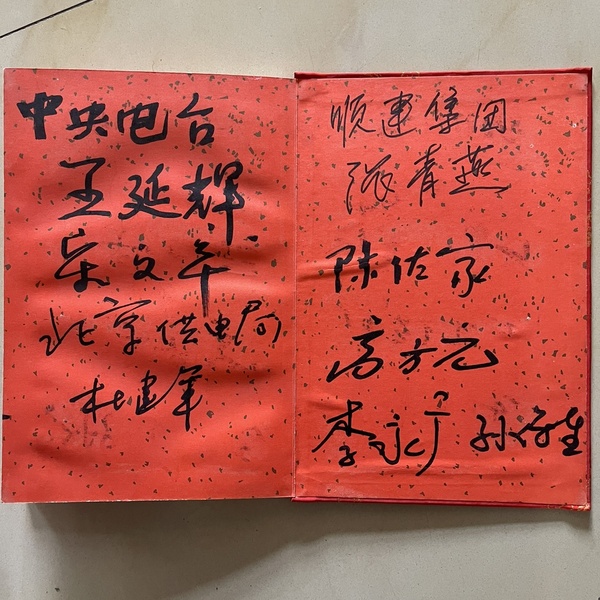 中央电台
王延辉
柴文年
北京供电局
杜建军
顺建集团
张青燕
陈佐家
高方元
李永 孙保生